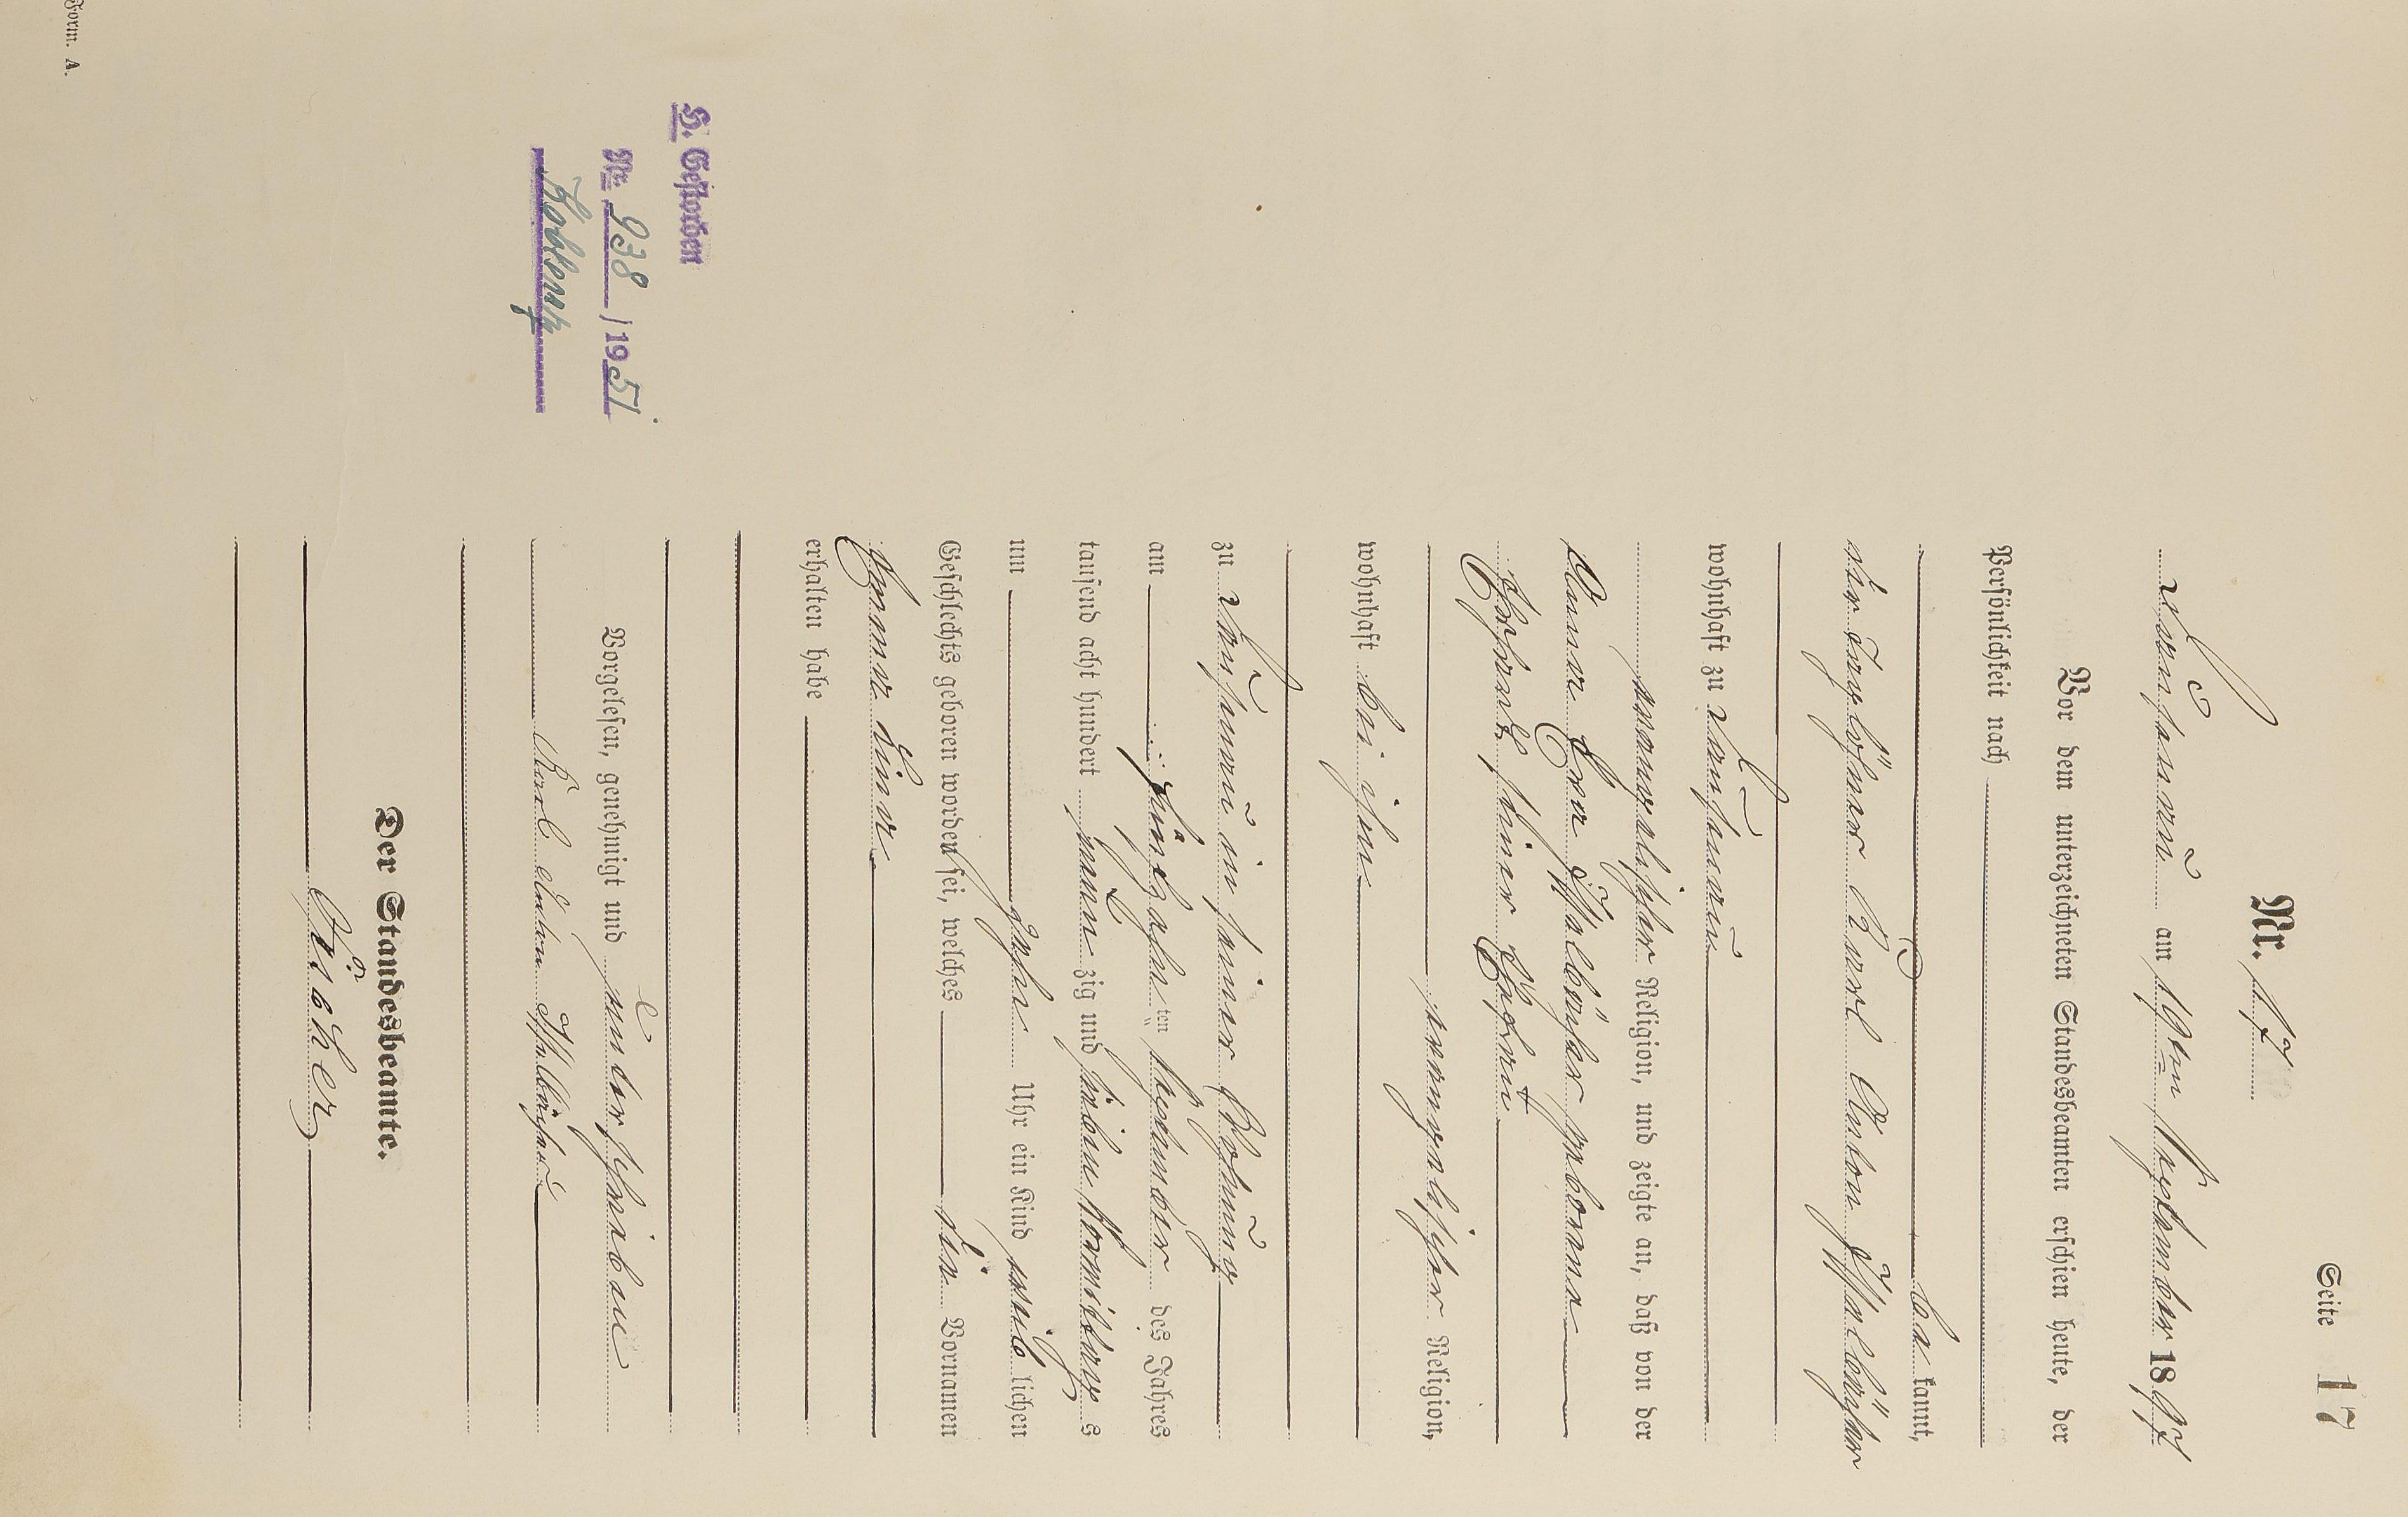 Seite 17
Nr. 17.
am 19ten September 1897
Vor dem unterzeichneten Standesbeamten erschien heute, der
Persönlichkeit nach
be kannt,
der Tagelöhner Karl Anton
wohnhaft zu
evangelischer Religion, und zeigte an, daß von der
Anna Eva geborene
Ehefrau
evangelischer Religion,
wohnhaft bei ihm
zu in seiner Wohnung
am fünfzehn ten September des Jahres
tausend acht hundert neun zig und sieben Vormittags
um zehn Uhr ein Kind weib lichen
Geschlechts geboren worden sei, welches die Vornamen
Emma Lina
erhalten habe
Vorgelesen, genehmigt und unterschrieben
Karl Anton
Der Standesbeamte.
H. Gestorben
Nr. 938 / 1951
Koblenz
Form. A.